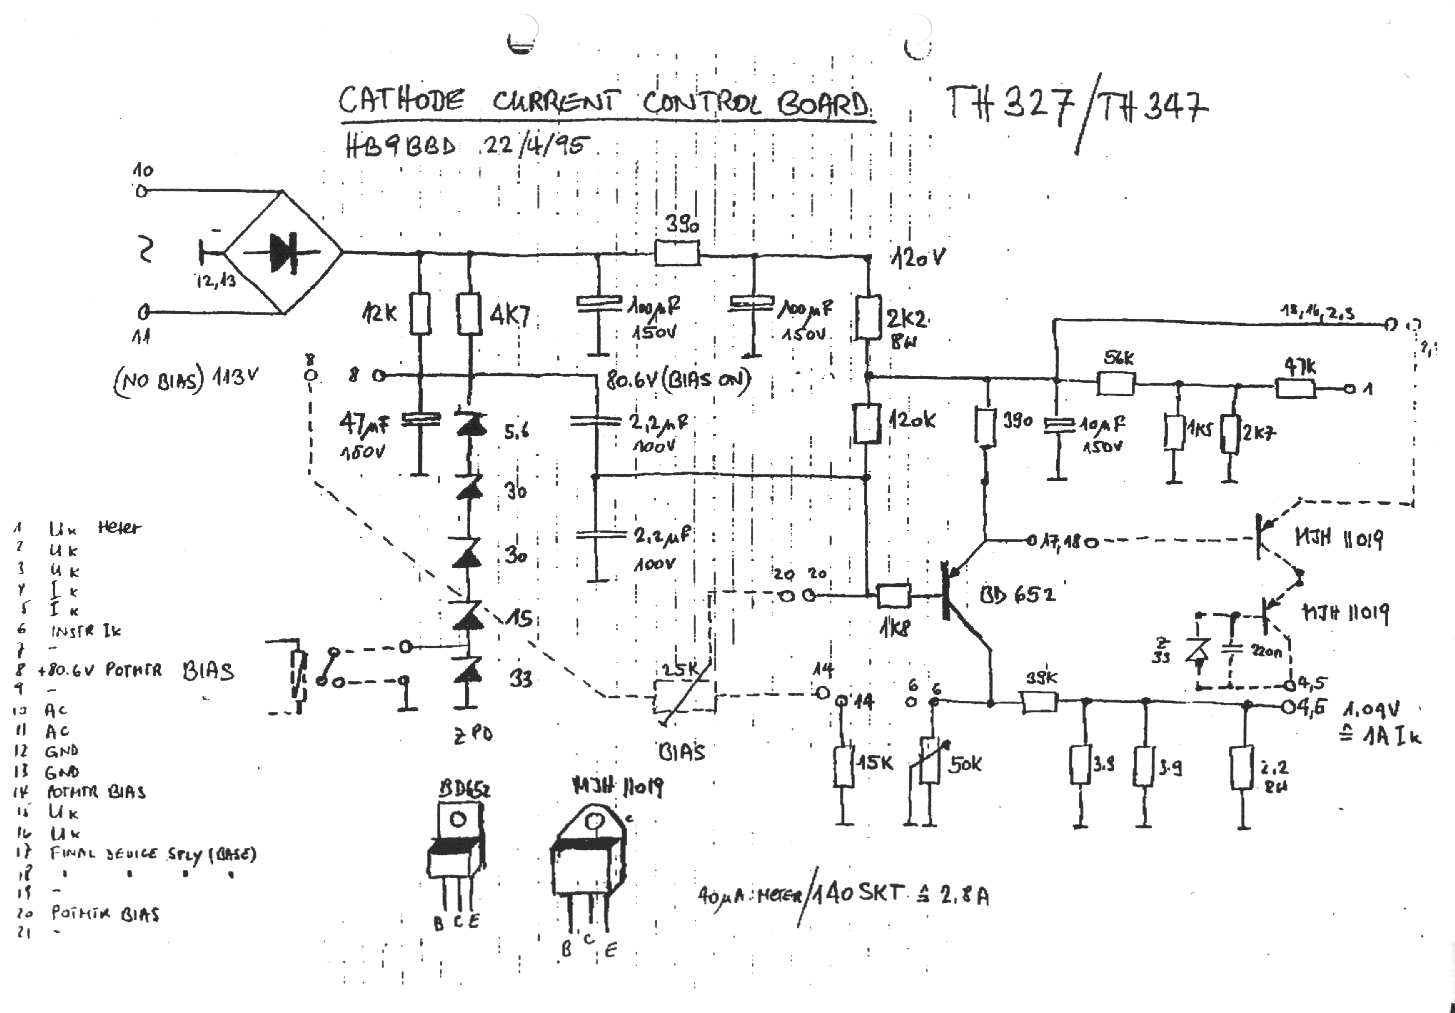 CATHODE CURRENT CONTROL BOARD TH327/TH347
HB9BBD 22/4/95
10
11
12,13
-
(NO BIAS) 113V
390
120V
12K
4K7
100µF
150V
100µF
150V
2K2
8W
18,16,2,3
8
8
80.6V (BIAS ON)
56K
47K
1
47µF
150V
5,6
2,2µF
100V
120K
390
10µF
150V
1K5
2K7
30
30
2,2µF
100V
17,18
MJH 11019
20 20
BD 652
1K8
15
MJH 11019
Z
33
220n
33
25K
14
14
6 6
39K
4,5
4,5 1.04V
≙ 1A Ik
Z PD
BIAS
15K
50K
3.9
3.9
2,2
8W
1 Uk Meter
2 Uk
3 Uk
4 Ik
5 Ik
6 INSTR Ik
7 -
8 +80.6V POTMTR BIAS
9 -
10 AC
11 AC
12 GND
13 GND
14 POTMTR BIAS
15 Uk
16 Uk
17 FINAL DEVICE SPLY (BASE)
18 " " " "
19 -
20 POTMTR BIAS
21 -
BD652
MJH 11019
c
B C E
B C E
40µA METER/140 SKT ≙ 2,8A